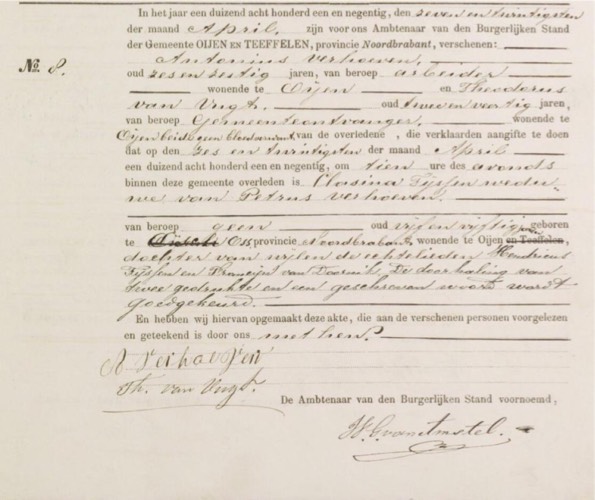 In het jaar een duizend acht honderd een en negentig, den zeven en twintigsten
der maand April. zijn voor ons Ambtenaar van den Burgerlijken Stand
der Gemeente OIJEN EN TEEFFELEN, provincie Noordbrabant, verschenen:
No. 8.
Antonius Verhoeven,
oud zes en zestig jaren, van beroep arbeider
wonende te Oijen en Theodorus
van Vugt. oud twee en veertig jaren,
van beroep Gemeenteontvanger. wonende te
Oijen beide geen bloedverwant van de overledene , die verklaarden aangifte te doen
dat op den zes en twintigsten der maand April
een duizend acht honderd een en negentig, om tien ure des avonds
binnen deze gemeente overleden is Clasina Tijssen wedu-
we van Petrus Verhoeven.
van beroep geen oud vijf en vijftig jaren geboren
te Oss, provincie Noordbrabant, wonende te Oijen en Teeffelen,
dochter van wijlen de echtelieden Hendricus
Tijssen en Francijn van Doornik. De doorhaling van
twee gedrukte en een geschreven woord wordt
goedgekeurd.
En hebben wij hiervan opgemaakt deze akte, die aan de verschenen personen voorgelezen
en geteekend is door ons met hen.
A Verhoeven
Th. van Vugt.
De Ambtenaar van den Burgerlijken Stand voornoemd,